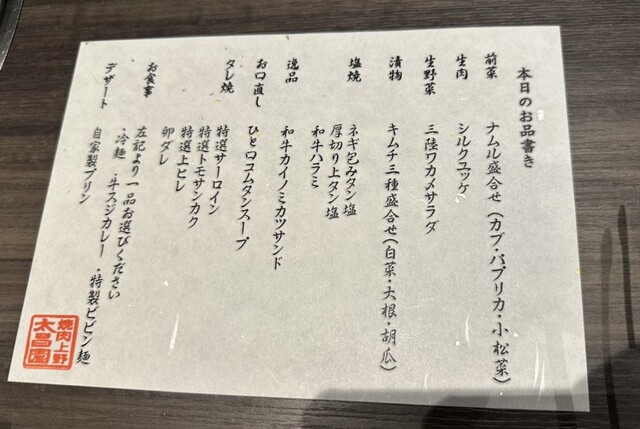 本日のお品書き
前菜 ナムル盛合せ(カブ・パプリカ・小松菜)
生肉 シルクユッケ
生野菜 三陸ワカメサラダ
漬物 キムチ三種盛合せ(白菜・大根・胡瓜)
塩焼 ネギ包みタン塩
厚切り上タン塩
和牛ハラミ
逸品 和牛カイノミカツサンド
お口直し ひと口コムタンスープ
タレ焼 特選サーロイン
特選トモサンカク
特選上ヒレ
卵ダレ
お食事 左記より一品お選びください
・冷麺 ・牛スジカレー ・特製ビビン麺
デザート 自家製プリン
焼肉上野
太昌園